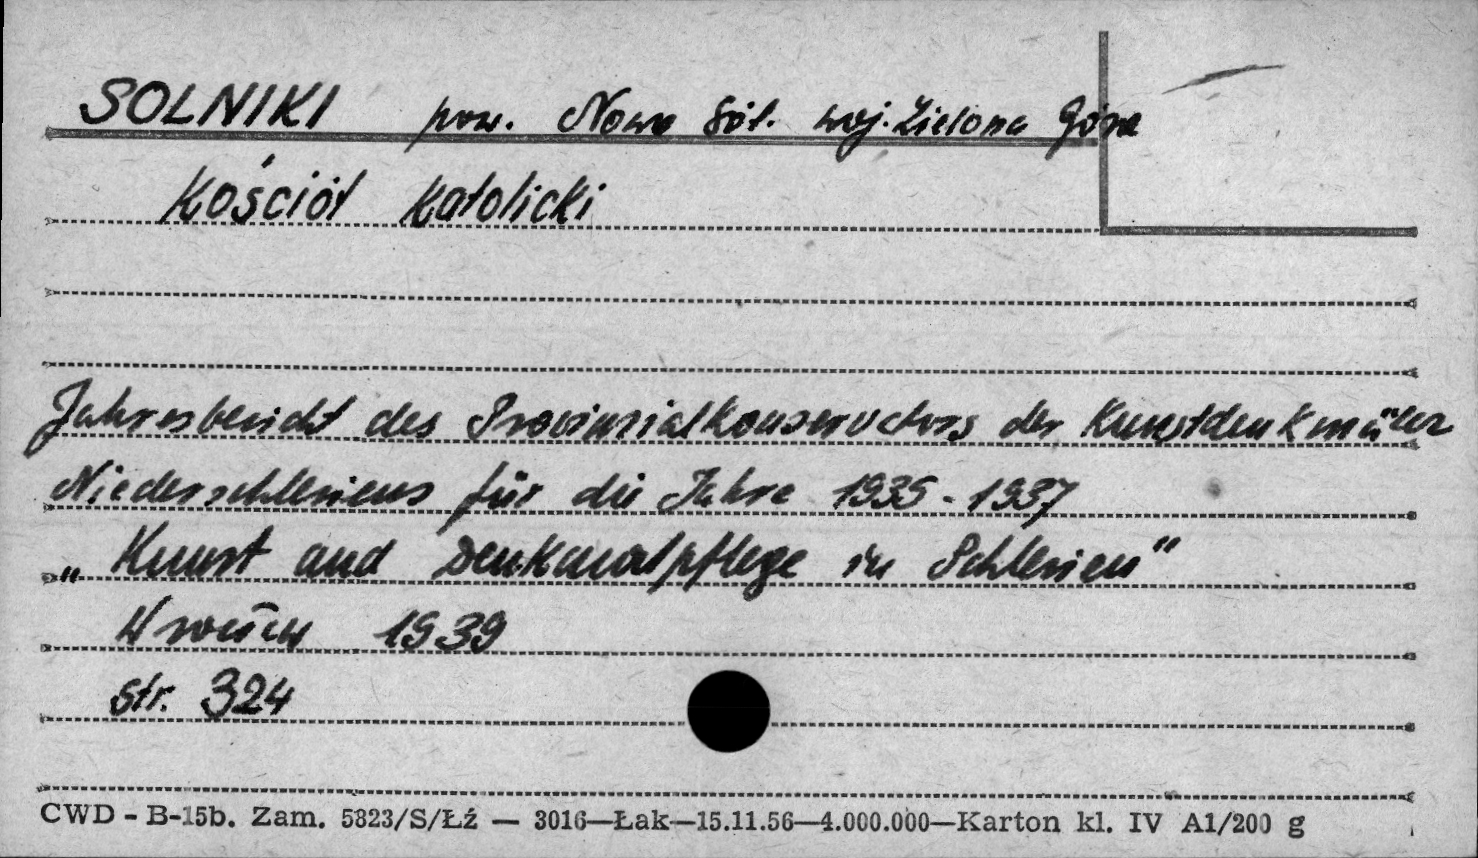 SOLNIKI pow. Nowa Sól. woj. Zielona Góra
Kościół katolicki
Jahresbericht des Provinzialkonservators der Kunstdenkmäler
Niederschlesiens für die Jahre 1935-1937
„Kunst und Denkmalpflege in Schlesien"
Wrocław 1939
str. 324
CWD - B-15b. Zam. 5823/S/Łź — 3016—Łak—15.11.56—4.000.000—Karton kl. IV A1/200 g